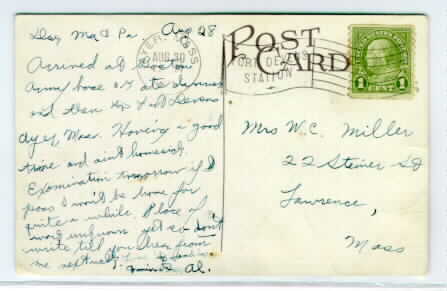 Dear Ma & Pa. Aug 28
Arrived at Boston
Army base ate dinner
and then to Ft Devens
Ayer, Mass. Having a good
time and aint homesick.
Examination tomorrow if I
pass I won't be home for
quite a while. Place of
work unknown yet so don't
write till you hear from
me
Al.
AYER MASS
AUG 30
POST CARD
FORT DEVENS
STATION
1 CENT 1
Mrs W.C. Miller
22 Steiner Sd
Lawrence,
Mass